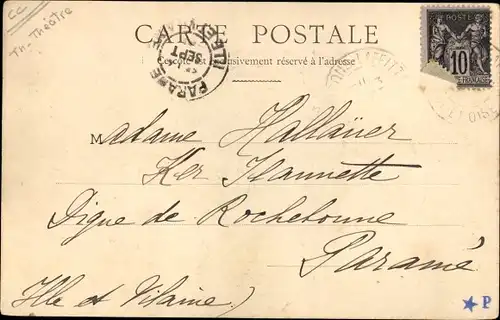 CC
Th. Théâtre
CARTE POSTALE
Ce côté est exclusivement réservé à l'adresse
POSTE
10
PARAMÉ
SEPT
Madame Hallaüer
Ker Jeannette
Digue de Rochebonne
Paramé
(Ille et Vilaine)
P